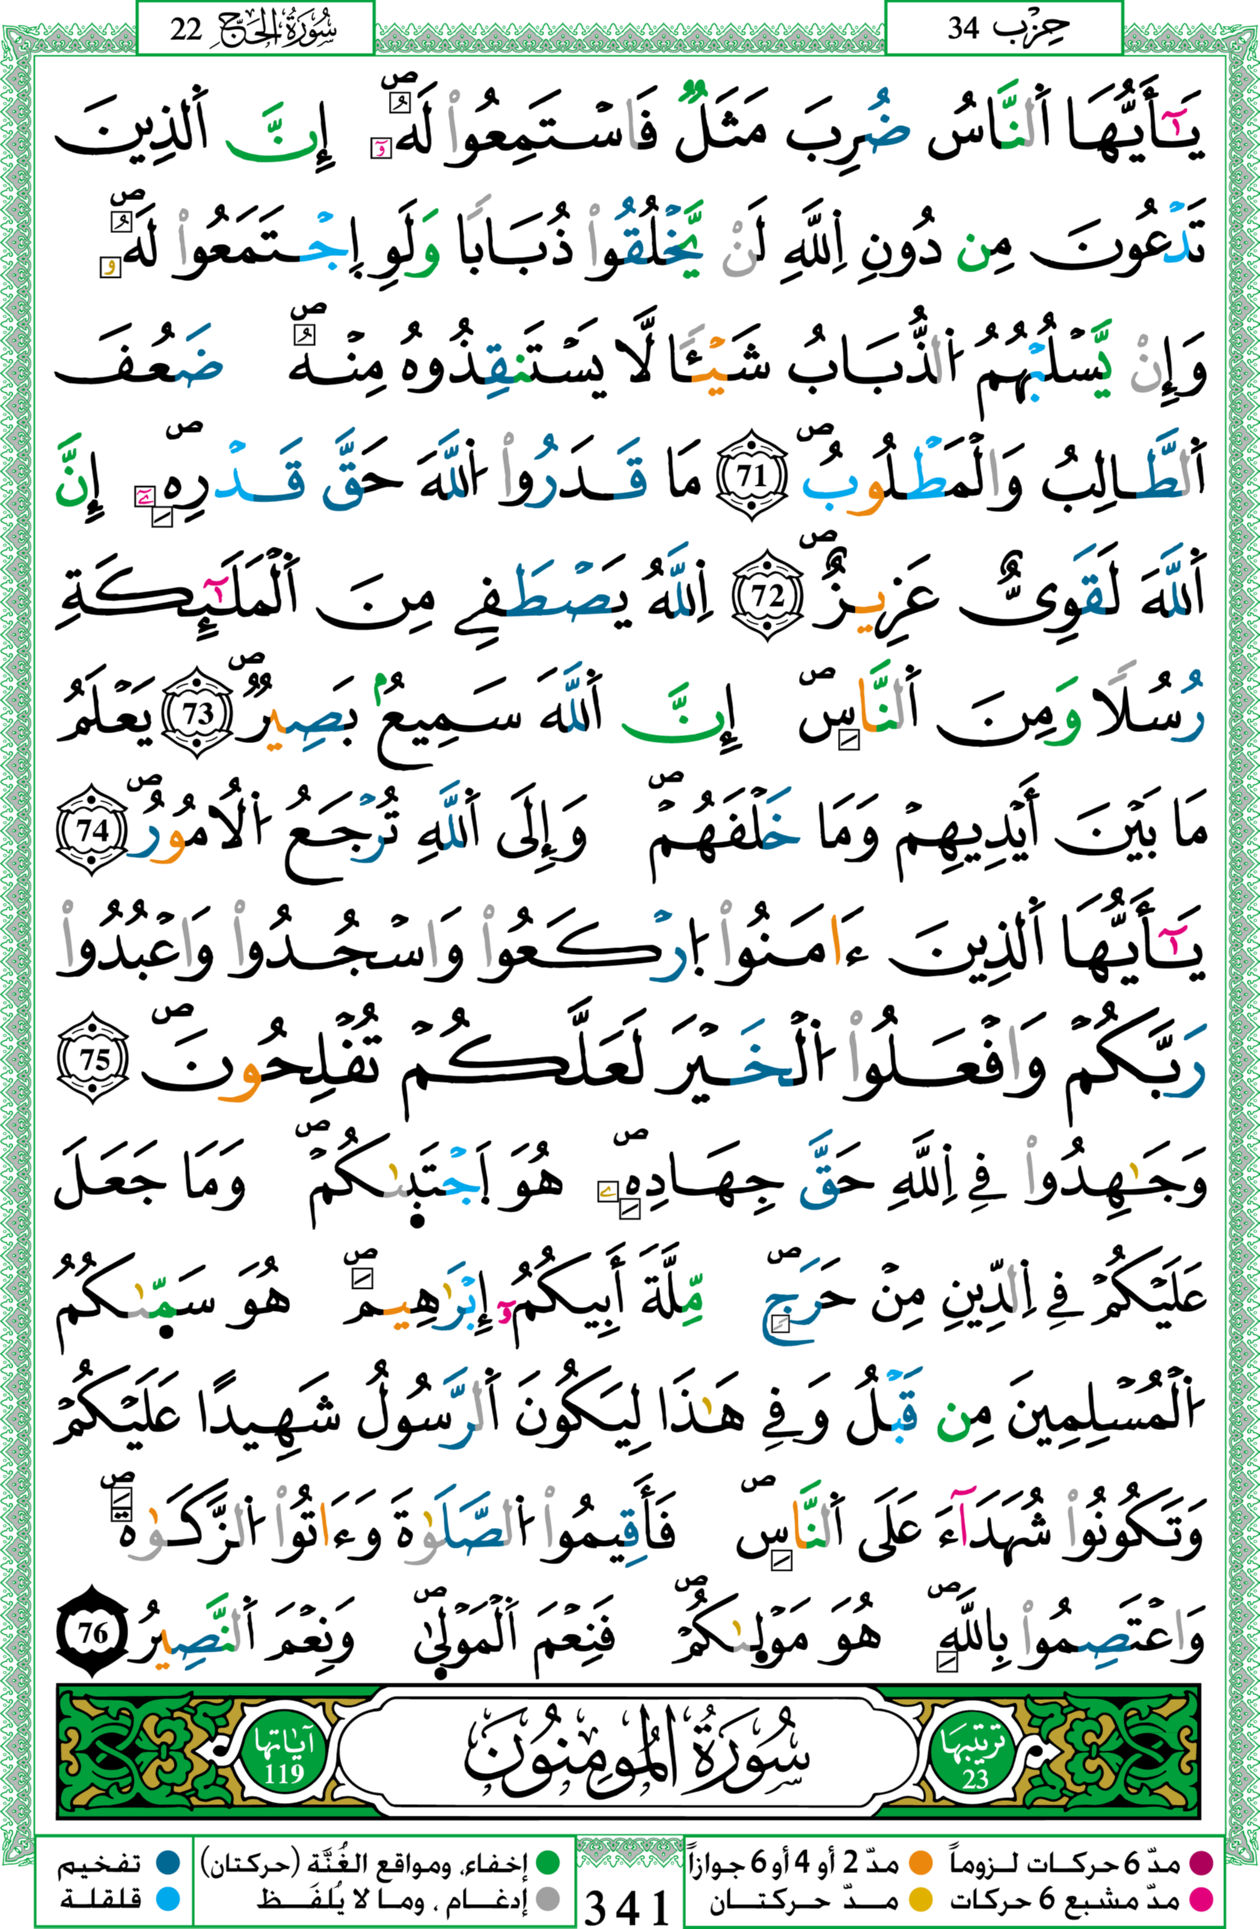 سُورَةُ الحَجِّ 22
حِزْب 34
يَٰٓأَيُّهَا اَ۬لنَّاسُ ضُرِبَ مَثَلٞ فَاسْتَمِعُواْ لَهُۥٓۖ إِنَّ اَ۬لذِينَ
تَدْعُونَ مِن دُونِ اِ۬للَّهِ لَنْ يَّخْلُقُواْ ذُبَاباٗ وَلَوِ اِ۪جْتَمَعُواْ لَهُۥۖ
وَإِنْ يَّسْلُبْهُمُ اُ۬لذُّبَابُ شَيْـٔاٗ لَّا يَسْتَنقِذُوهُ مِنْهُۖ ضَعُفَ
اَ۬لطَّالِبُ وَالْمَطْلُوبُۖ 71 مَا قَدَرُواْ اُ۬للَّهَ حَقَّ قَدْرِهِۦٓۖ إِنَّ
اَ۬للَّهَ لَقَوِىٌّ عَزِيزٌۖ 72 اِ۬للَّهُ يَصْطَفِے مِنَ اَ۬لْمَلَٰٓئِكَةِ
رُسُلاٗ وَمِنَ اَ۬لنَّاسِۖ إِنَّ اَ۬للَّهَ سَمِيعُۢ بَصِيرٞۖ 73 يَعْلَمُ
مَا بَيْنَ أَيْدِيهِمْ وَمَا خَلْفَهُمْۖ وَإِلَى اَ۬للَّهِ تُرْجَعُ اُ۬لُامُورُۖ 74
يَٰٓأَيُّهَا اَ۬لذِينَ ءَامَنُواْ اُ۪رْكَعُواْ وَاسْجُدُواْ وَاعْبُدُواْ
رَبَّكُمْ وَافْعَلُواْ اُ۬لْخَيْرَ لَعَلَّكُمْ تُفْلِحُونَۖ 75
وَجَٰهِدُواْ فِے اِ۬للَّهِ حَقَّ جِهَادِهِۦۖ هُوَ اَ۪جْتَبٜىٰكُمْۖ وَمَا جَعَلَ
عَلَيْكُمْ فِے اِ۬لدِّينِ مِنْ حَرَجٖۖ مِّلَّةَ أَبِيكُمُۥٓ إِبْرَٰهِيمَۖ هُوَ سَمّٜىٰكُمُ
اُ۬لْمُسْلِمِينَ مِن قَبْلُ وَفِے هَٰذَا لِيَكُونَ اَ۬لرَّسُولُ شَهِيدًا عَلَيْكُمْ
وَتَكُونُواْ شُهَدَآءَ عَلَى اَ۬لنَّاسِۖ فَأَقِيمُواْ اُ۬لصَّلَوٰةَ وَءَاتُواْ اُ۬لزَّكَوٰةَۖ
وَاعْتَصِمُواْ بِاللَّهِۖ هُوَ مَوْلٜىٰكُمْۖ فَنِعْمَ اَ۬لْمَوْلٜىٰۖ وَنِعْمَ اَ۬لنَّصِيرُ 76
ترتيبها 23
سُورَةُ الْمُومِنُونَ
آياتها 119
مدّ 6 حركات لـزوماً
مدّ 2 أو 4 أو 6 جوازاً
إخفاء، ومواقع الغُنَّة (حركتان)
تفخيم
مدّ مشبع 6 حركات
مـدّ حركتـان
إدغام ، وما لا يُلفَظ
قلقلة
341